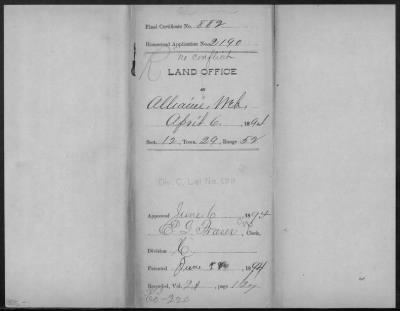 Final Certificate No. 882
Homestead Application No. 2190
no conflict
R
LAND OFFICE
AT
Alliance, Neb,
April 6, 189
Sect. 12, Town. 29, Range 52
Approved June 6 1894
Clerk.
Division C
Patented June 1894
Recorded, Vol. 21, page